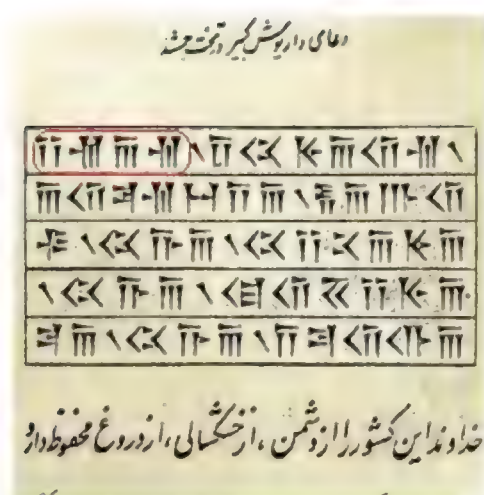 دعای داریوش کبیر در تخت جمشید
𐎡𐎶𐎠𐎶𐏐𐎭𐏃𐎹𐎠𐎢𐎶𐏐
𐎠𐎢𐎼𐎶𐏀𐎭𐎠𐏐𐎱𐎠𐎫𐎢
𐎺𐏐𐏃𐎨𐎠𐏐𐏃𐎡𐎴𐎠𐎹𐎠
𐏐𐏃𐎨𐎠𐏐𐎯𐎢𐏁𐎡𐎹𐎠
𐎼𐎠𐏐𐏃𐎨𐎠𐏐𐎭𐎼𐎢𐎥𐎠
خداوند این کشور را از دشمن ، از خشکسالی ، از دروغ محفوظ دارد